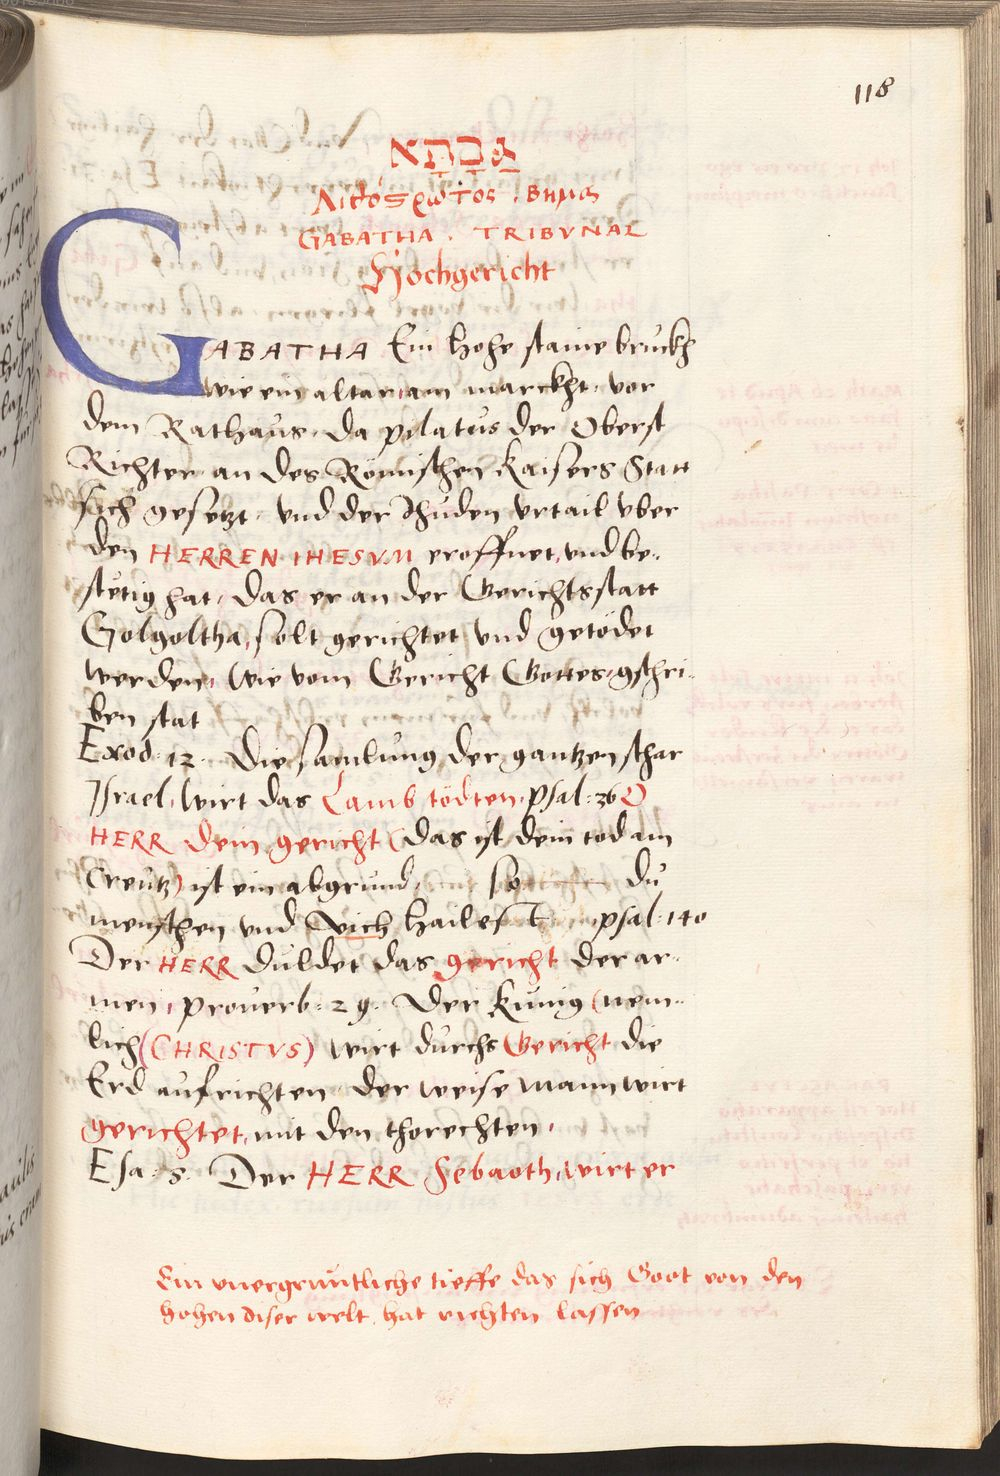 118
גַּבָּתָא
λιθόσρωτος . βημα
GABATHA . TRIBVNAL
Hochgericht
GABATHA Ein hohe staine bruckh
wie ein altar, am marckht, vor
dem Rathaus, da pilatus der Oberst
Richter an des Römischen Kaisers Statt
sich gesetzt, vnd der Juden vrtail vber
den HERREN IHESVM eroffnet, vnd be-
stetig hat, das er an der Gerichtsstatt
Golgoltha, solt gerichtet vnd getödet
werden, wie vom Gericht Gottes gschri-
ben stat
Exod. 12. Die samlung der gantzen schar
Israel, wirt das Lamb tödten, psal: 36 O
HERR dein gericht (das ist dein tod am
Creutz) ist ein abgrund, so du
menschen vnd vich hailest psal. 140
Der HERR duldet das gericht der ar-
men, prouerb. 29. Der Kunig (nem-
lich (CHRISTVS) wirt durchs Gericht die
Erd aufrichten. Der weise mann wirt
gerichtet, mit den thorechten,
Esa. 5. Der HERR Sebaoth, wirt er
Ein vnergruntliche tieffe das sich Goot von den
hohen diser welt, hat richten lassen